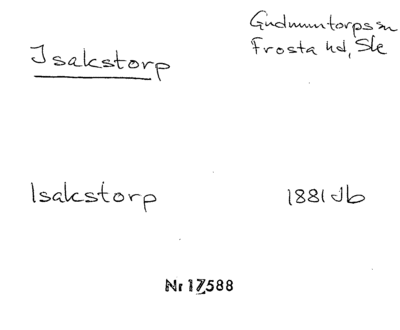 Isakstorp
Gudmuntorps sn
Frosta hd, Sk
Isakstorp
1881 Jb
Nr 17588